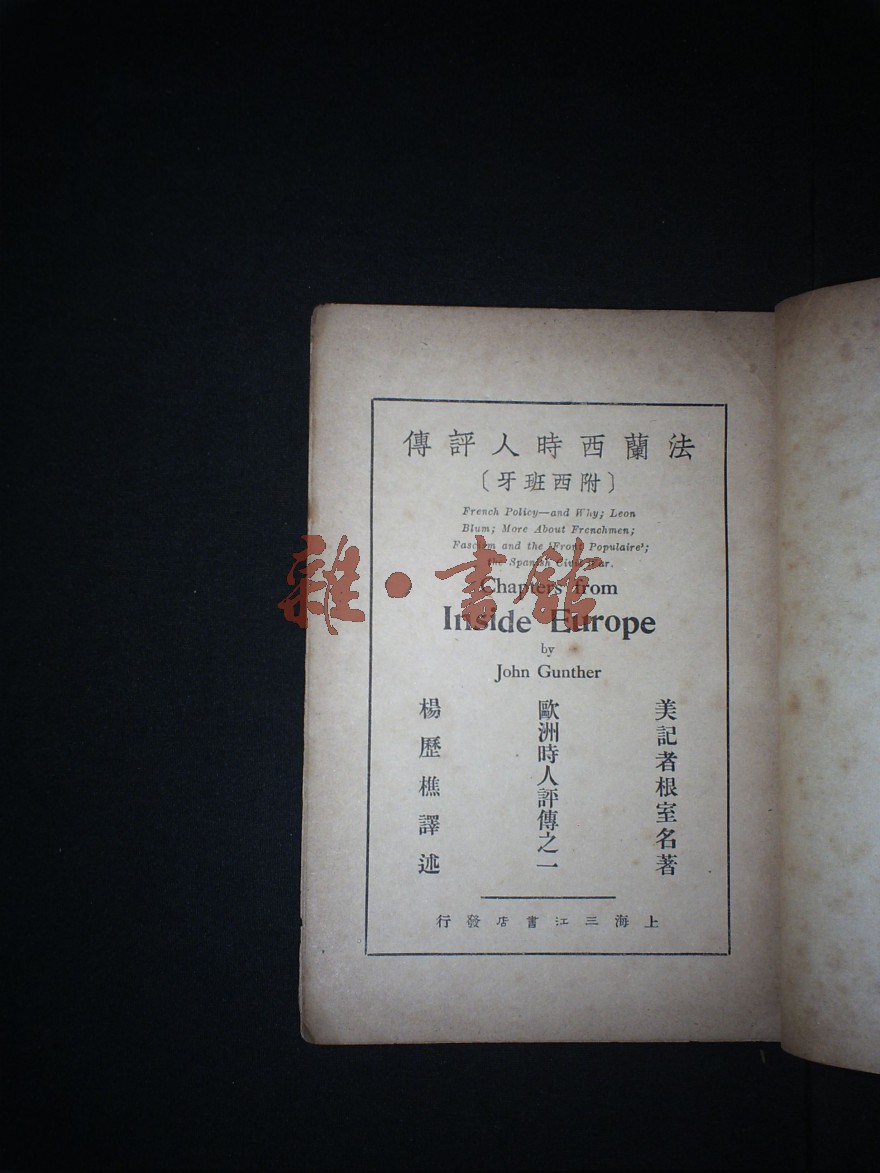 法蘭西時人評傳
〔附西班牙〕
French Policy—and Why; Leon
Blum; More About Frenchmen;
Fascism and the 'Front Populaire';
the Spanish Civil War.
Chapters from
Inside Europe
by
John Gunther
美記者根室名著
歐洲時人評傳之一
楊歷樵譯述
上海三江書店發行
雜·書館